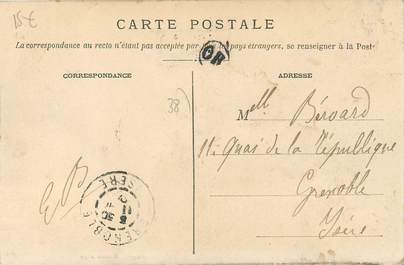 15€
CARTE POSTALE
La correspondance au recto n'étant pas acceptée par tous les pays étrangers, se renseigner à la Poste
OR
CORRESPONDANCE
ADRESSE
38)
Melle Bérard
11 Quai de la République
Grenoble
Isère
EB
GRENOBLE
ISERE